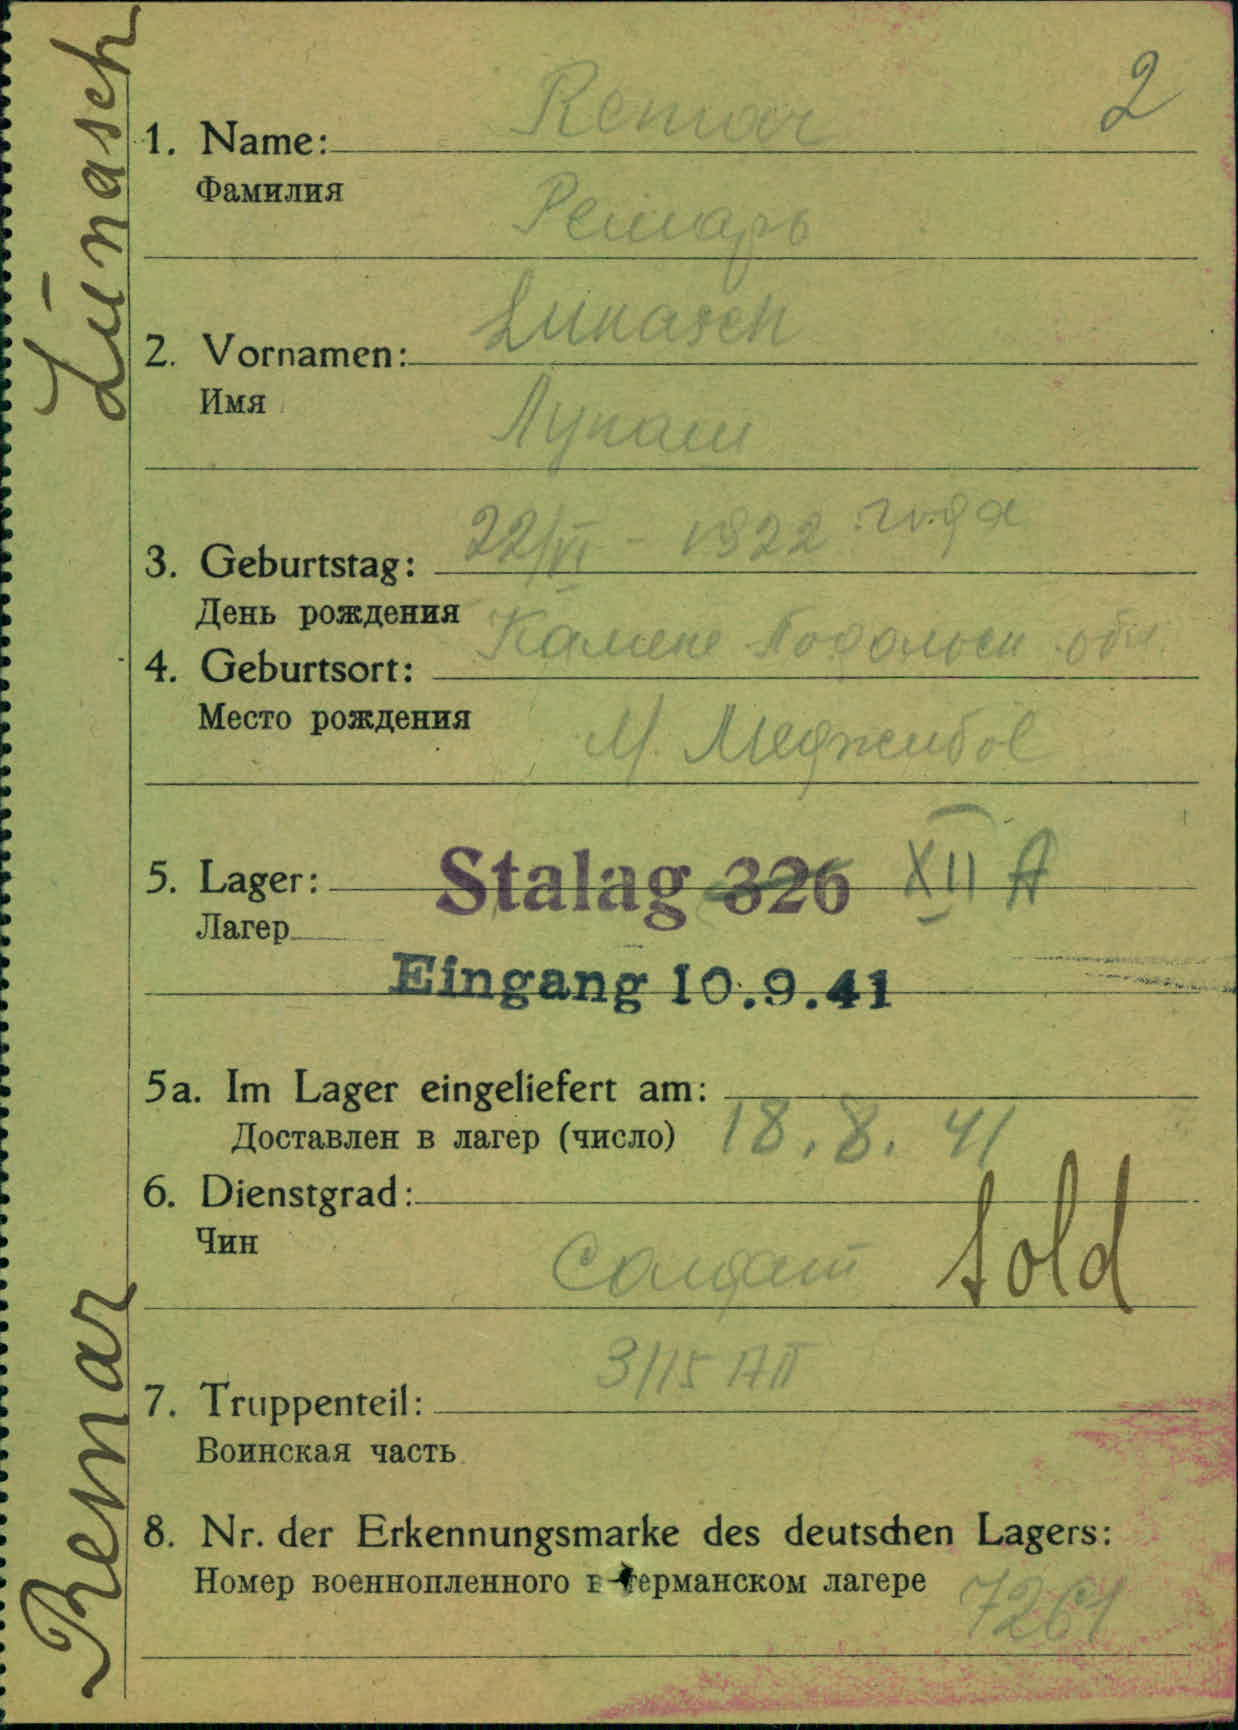 Remar Lunasch
2
1. Name: Remar
Фамилия Ремарь
2. Vornamen: Lunasch
Имя Лунаш
3. Geburtstag: 22/VI - 1922 года
День рождения
4. Geburtsort: Камене Подольск обл.
Место рождения М. Меджибос
5. Lager: Stalag 326 XII A
Лагер
Eingang 10.9.41
5a. Im Lager eingeliefert am:
Доставлен в лагер (число) 18.8.41
6. Dienstgrad:
Чин Солдат Sold
3/15 АП
7. Truppenteil:
Воинская часть
8. Nr. der Erkennungsmarke des deutschen Lagers:
Номер военнопленного в германском лагере 7261